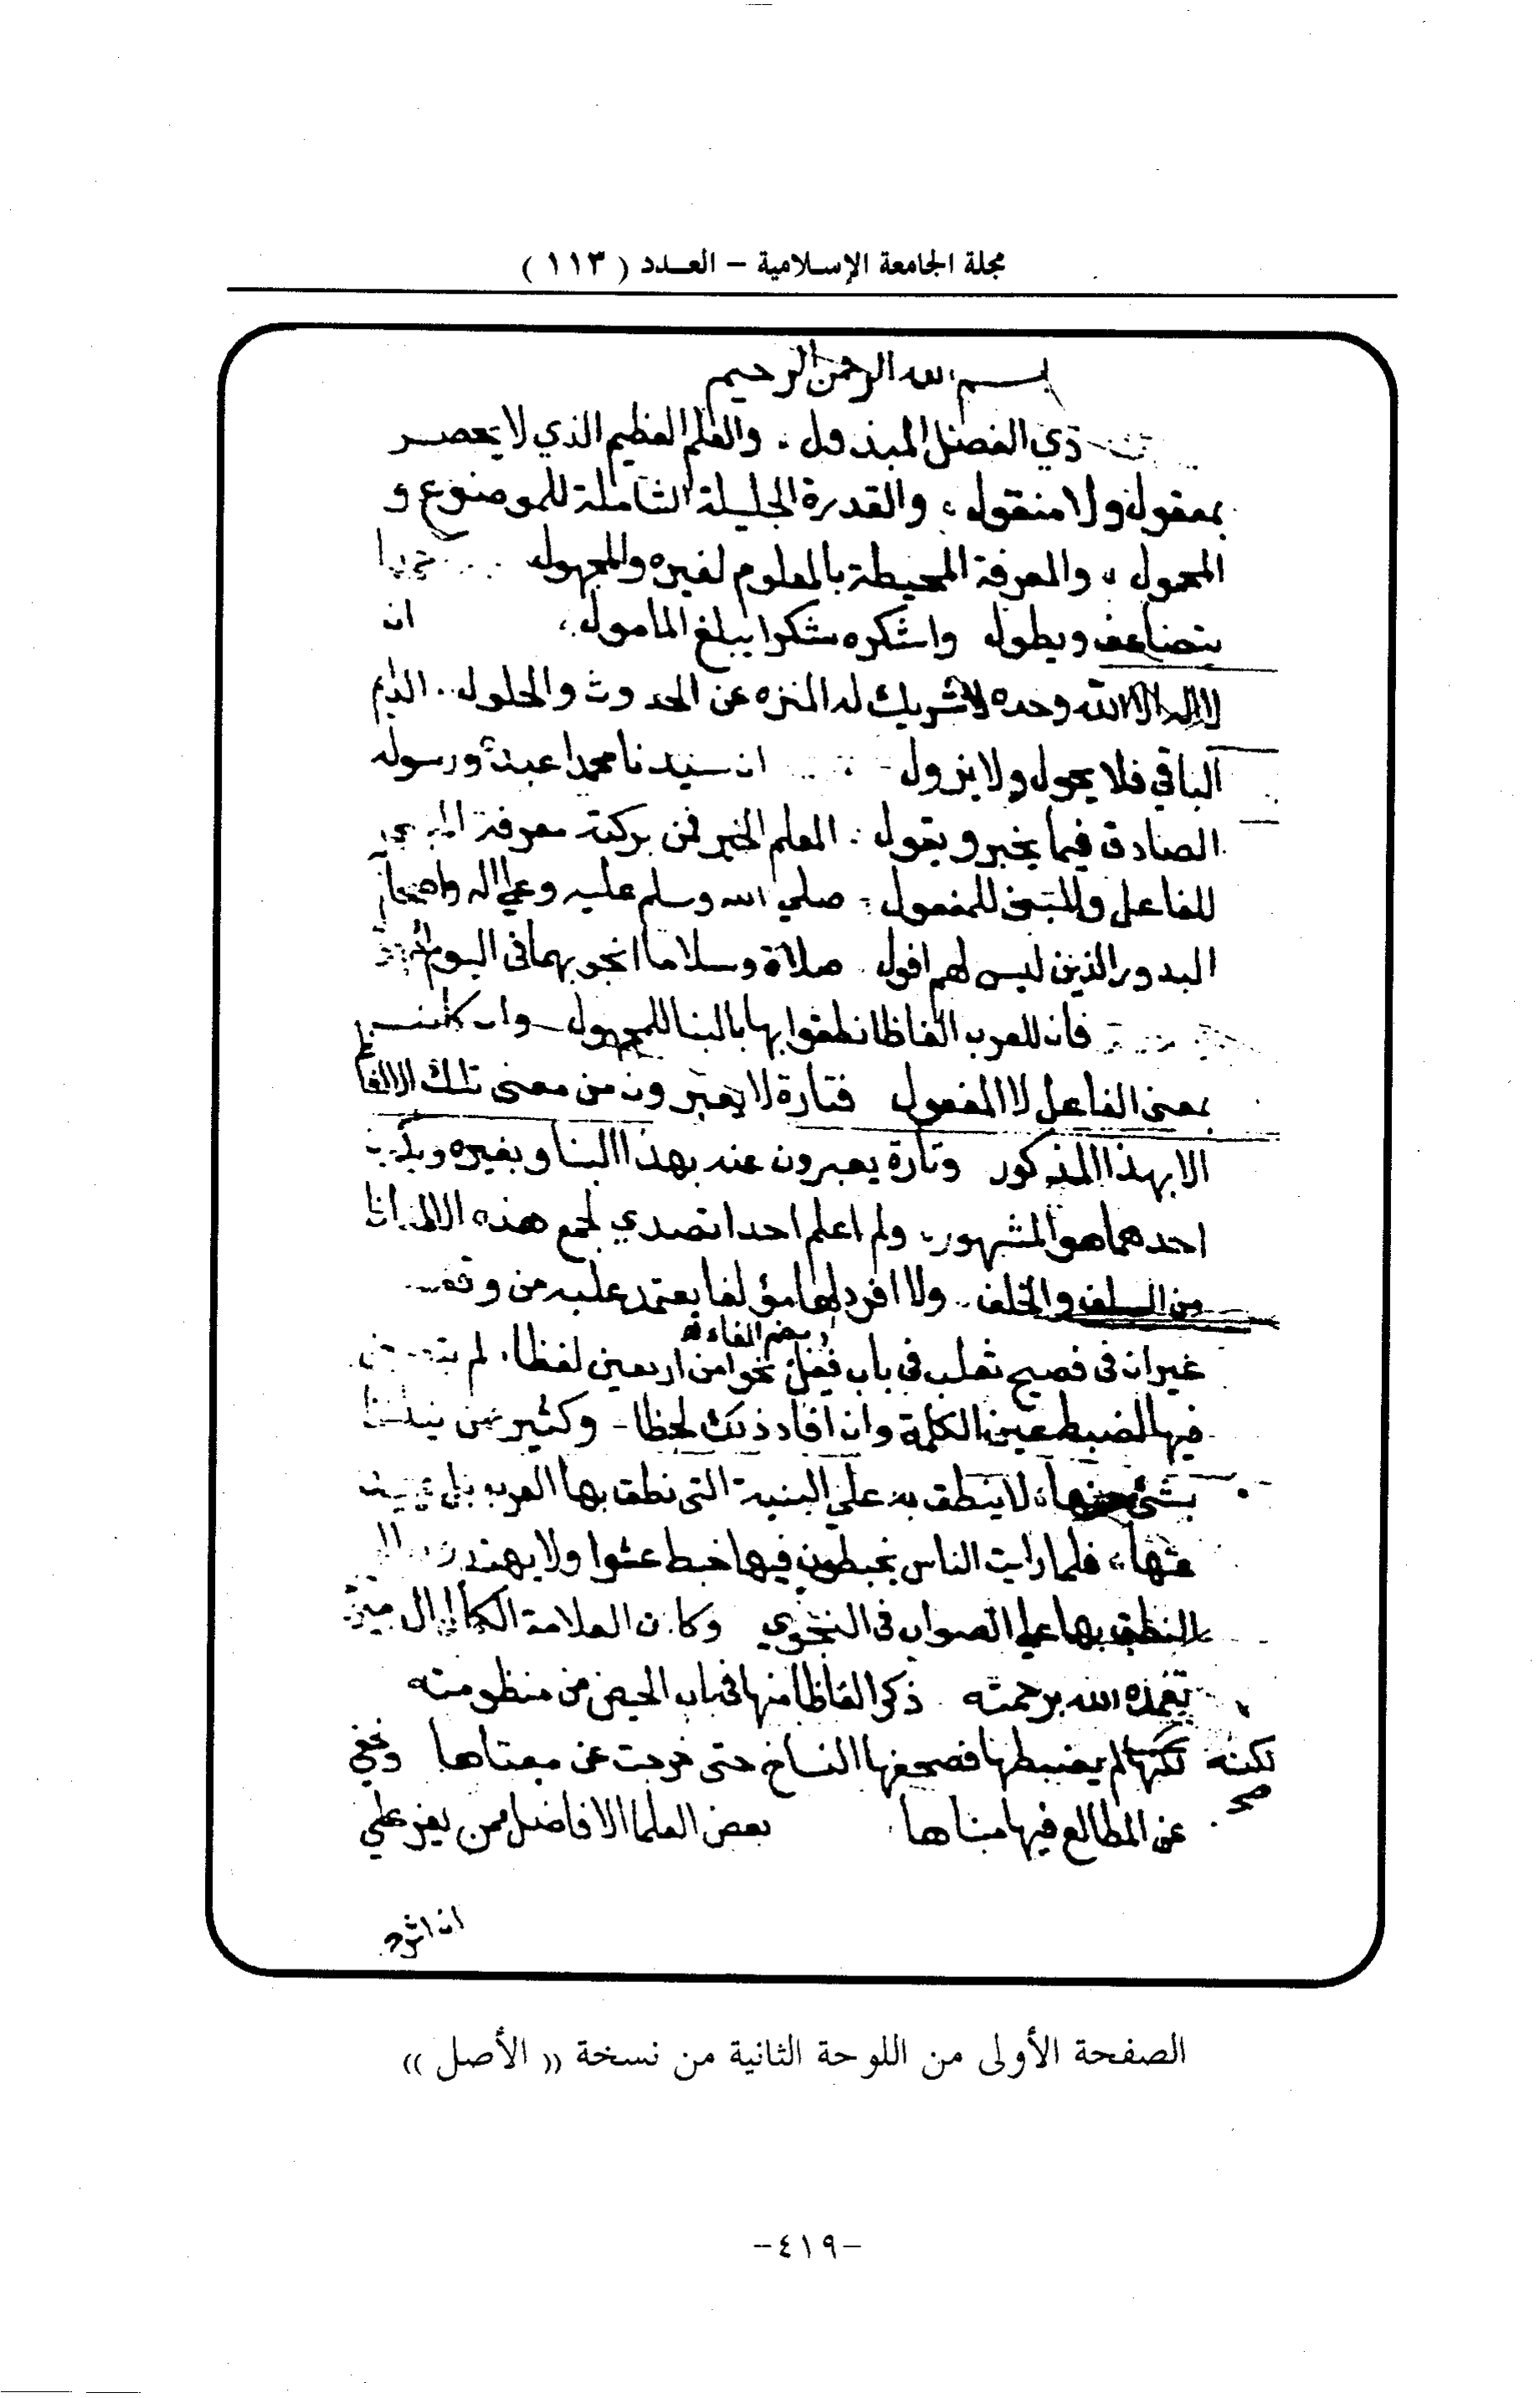 مجلة الجامعة الإسلامية – العـدد ( ١١٣ )
بسم الله الرحمن الرحيم
ذي الفضل المبذول . والعلم العظيم الذي لا يحصر
بمعقول ولا منقول . والقدرة الجليلة الشاملة للموضوع و
المحمول . والمعرفة المحيطة بالمعلوم لغيره والمجهول
يتضاعف ويطول واشكره شكرا يبلغ المامول . ان
لا اله الا الله وحده لا شريك له المنزه عن الحدوث والحلول . الدايم
الباقي فلا يحول ولا يزول ان سيدنا محمدا عبده ورسوله
الصادق فيما يخبر ويقول . المعلم الخير فمن بركته معرفة
للفاعل والمبني للمفعول . صلي الله وسلم عليه وعلي اله واصحابه
البدور الذين ليس لهم افول . صلاة وسلاما انجو بهما في اليوم
فان للعرب الفاظا نطقوا بها بالبنا للمجهول وان كانت
بمعنى الفاعل لا المفعول فتارة لا يعبرون من معنى تلك الالفاظ
الا بهذا المذكور وتارة يعبرون عنه بهذا البنا وبغيره
احدهما هو المشهور . ولم اعلم احدا تصدي لجمع هذه الالفاظ
من السلف والخلف . ولا افرد لها مؤلفا يعتمد عليه من وقف
بضم الفاء
غير ان في فصيح ثعلب في باب فعل نحوا من اربعين لفظا . لم
فيها لضبط عين الكلمة وان افاد ذلك لحظا - وكثير من
بشئ منها . لا ينطق به علي البنية التي نطق بها العرب بل
عنها . فلما رايت الناس يخبطون فيها خبط عشوا ولا يهتدون
النطق بها علي الصواب في النحوي وكان العلامة الكمال
تغمده الله برحمته ذكر الفاظا منها في باب الحيض من منظومته
لكنه لكنها لم يضبطها فصحفها النساخ حتى خرجت عن معناها وخفي
صح
عن المطالع فيها مبناها بعض العلما الافاضل ممن يعز علي
ان ارد
الصفحة الأولى من اللوحة الثانية من نسخة (( الأصل ))
-٤١٩-